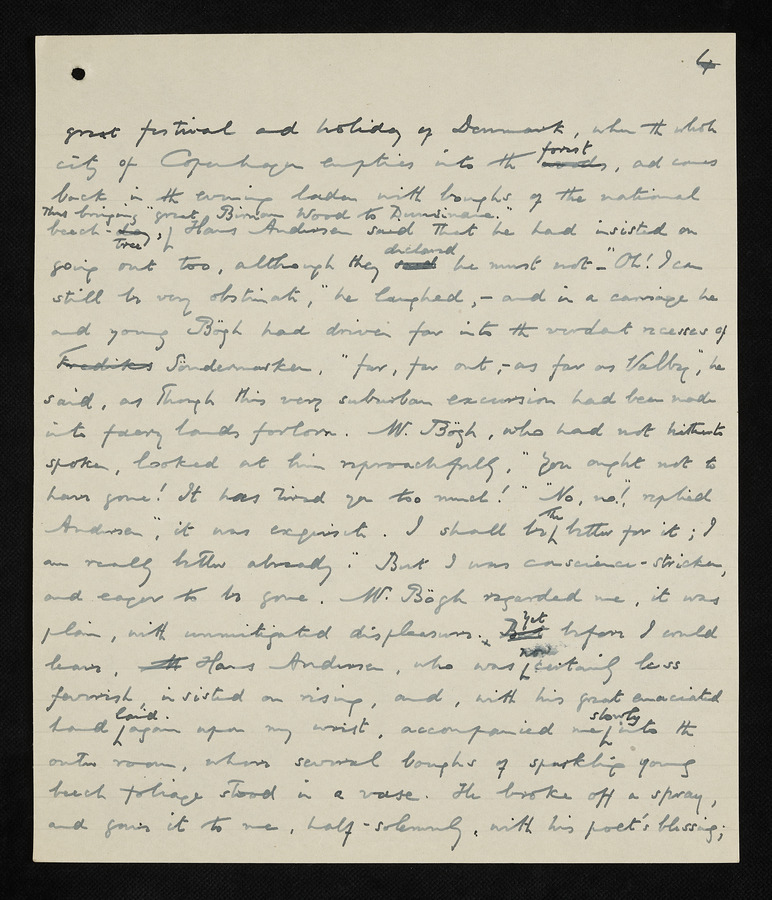 4
great festival and holiday of Denmark, when the whole
city of Copenhagen empties into the woods forest, and comes
back in the evening laden with boughs of the national
Thus bringing "great Birnam Wood to Dunsinane."
beech-tree; Hans Andersen said that he had insisted on
going out too, although they said declared he must not – "Oh! I can
still be very obstinate," he laughed, – and in a carriage he
and young Bögh had driven far into the verdant recesses of
Frediks Söndermarken, "far, far out, – as far as Valby", he
said, as though this very suburban excursion had been made
into faery lands forlorn. Mr. Bögh, who had not hitherto
spoken, looked at him reproachfully, "You ought not to
have gone! It has tired you too much!" "No, no!", replied
Andersen, "it was exquisite. I shall be the better for it; I
am really better already." But I was conscience-stricken,
and eager to be gone. Mr. Bögh regarded me, it was
plain, with unmitigated displeasure. But Yet before I could
leave, Hans Andersen, who was now certainly less
feverish, insisted on rising, and, with his great emaciated
hand laid again upon my wrist, accompanied me slowly into the
outer room, where several boughs of sparkling young
beech foliage stood in a vase. He broke off a spray,
and gave it to me, half-solemnly, with his poet's blessing;